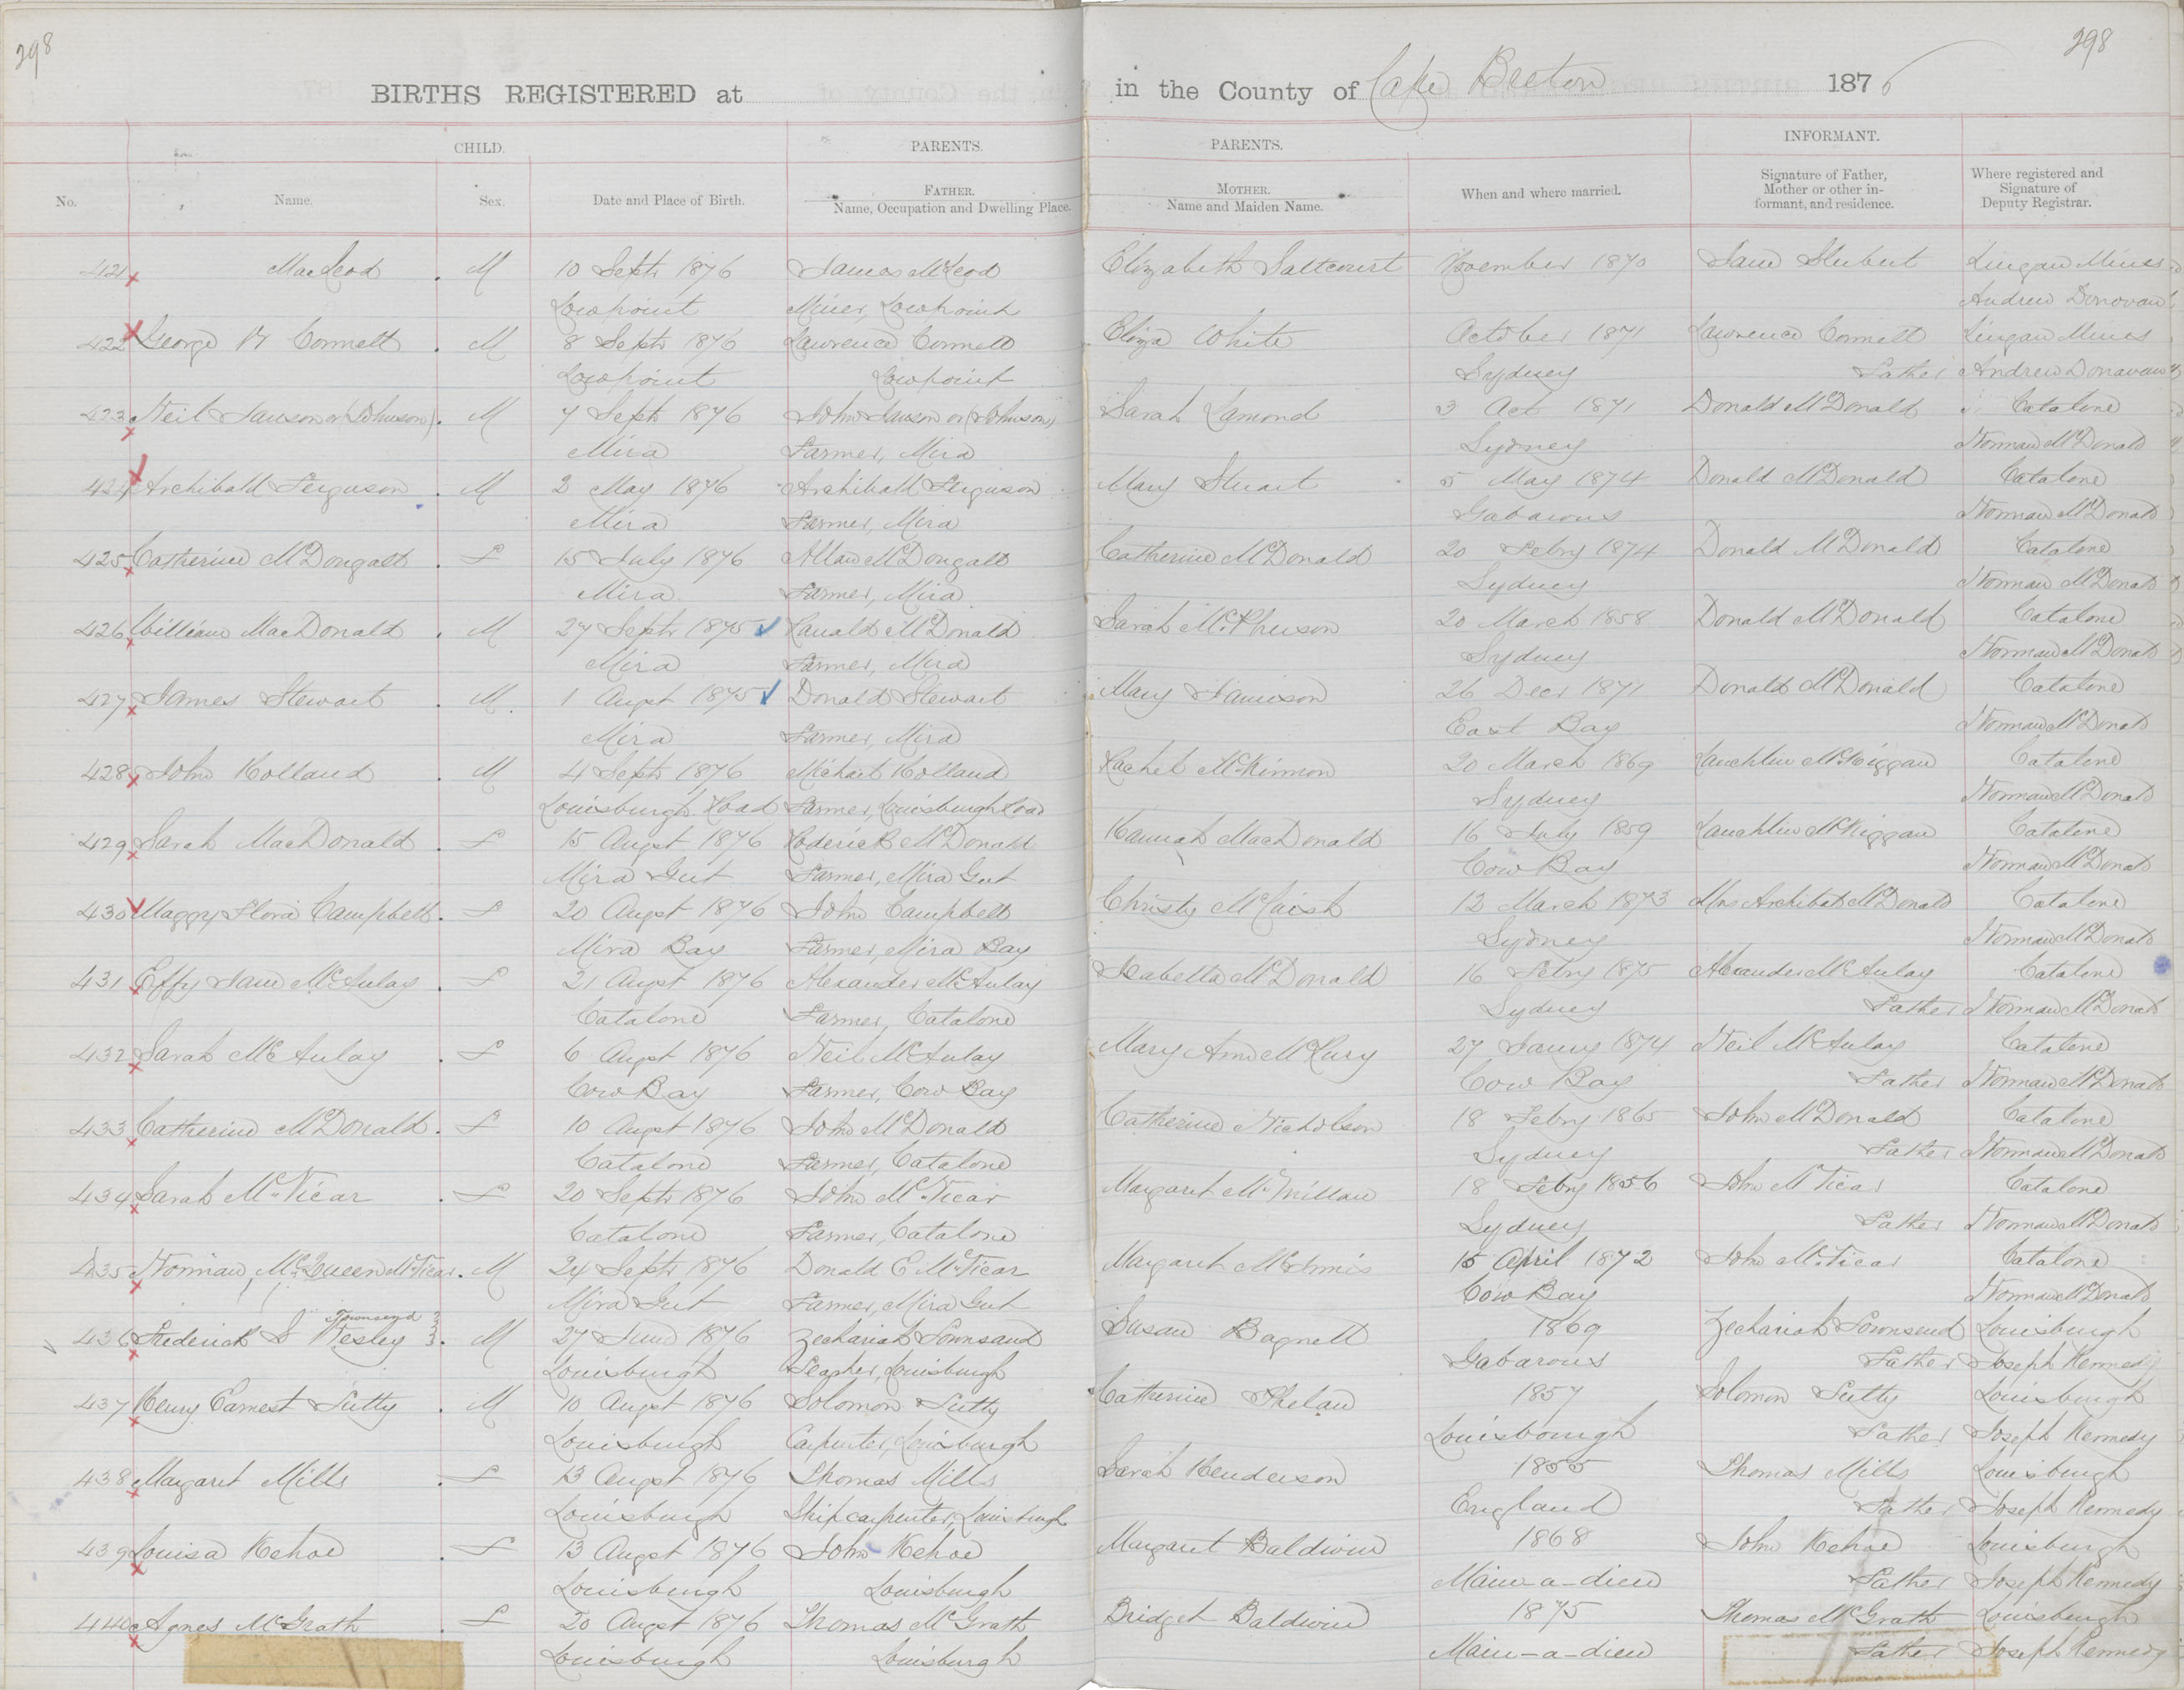 298
298
BIRTHS REGISTERED at in the County of Cape Breton 1876
CHILD. PARENTS. PARENTS. INFORMANT.
No. Name. Sex. Date and Place of Birth. FATHER. Name, Occupation and Dwelling Place. MOTHER. Name and Maiden Name. When and where married. Signature of Father, Mother or other informant, and residence. Where registered and Signature of Deputy Registrar.
421 MacLeod . M 10 Septr 1876 James McLeod Elizabeth Saltcourt November 1870 Jane Lingan Mines
Lowpoint Miner, Lowpoint Andrew Donovan
422 George H Connell . M 8 Septr 1876 Lawrence Connell Eliza White October 1871 Lawrence Connell Lingan Mines
Lowpoint Lowpoint Sydney Father Andrew Donavan
423 Neil Janson or (Johnson) . M 7 Septr 1876 John Janson or (Johnson) Sarah Lamond 3 Oct 1871 Donald McDonald Catalone
Mira Farmer, Mira Sydney Norman McDonald
424 Archibald Ferguson . M 2 May 1876 Archibald Ferguson Mary Stuart 5 May 1874 Donald McDonald Catalone
Mira Farmer, Mira Gabarous Norman McDonald
425 Catherine McDougall . F 15 July 1876 Allan McDougall Catherine McDonald 20 Febry 1874 Donald McDonald Catalone
Mira Farmer, Mira Sydney Norman McDonald
426 William MacDonald . M 27 Septr 1875 Ranald McDonald Sarah McPherson 20 March 1858 Donald McDonald Catalone
Mira Farmer, Mira Sydney Norman McDonald
427 James Stewart . M 1 Augst 1875 Donald Stewart Mary Jamison 26 Decr 1871 Donald McDonald Catalone
Mira Farmer, Mira East Bay Norman McDonald
428 John Holland . M 4 Septr 1876 Michael Holland Rachel McKinnon 20 March 1869 Lauchlin McKiggan Catalone
Louisburgh Road Farmer, Louisburgh Road Sydney Norman McDonald
429 Sarah MacDonald . F 15 Augst 1876 Roderick McDonald Hannah MacDonald 16 July 1859 Lauchlin McKiggan Catalone
Mira Gut Farmer, Mira Gut Cow Bay Norman McDonald
430 Maggy Flora Campbell . F 20 Augst 1876 John Campbell Christy 12 March 1873 Mrs Archibald McDonald Catalone
Mira Bay Farmer, Mira Bay Sydney Norman McDonald
431 Effy Jane McAulay . F 21 Augst 1876 Alexander McAulay Isabella McDonald 16 Febry 1875 Alexander McAulay Catalone
Catalone Farmer, Catalone Sydney Father Norman McDonald
432 Sarah McAulay . F 6 Augst 1876 Neil McAulay Mary Ann McLury 27 Jany 1874 Neil McAulay Catalone
Cow Bay Farmer, Cow Bay Cow Bay Father Norman McDonald
433 Catherine McDonald . F 10 Augst 1876 John McDonald Catherine Nicholson 18 Febry 1865 John McDonald Catalone
Catalone Farmer, Catalone Sydney Father Norman McDonald
434 Sarah McVicar . F 20 Septr 1876 John McVicar Margaret McMillan 18 Febry 1856 John McVicar Catalone
Catalone Farmer, Catalone Sydney Father Norman McDonald
435 Norman McQueen McVicar . M 24 Septr 1876 Donald E McVicar Margaret McInnis 15 April 1872 John McVicar Catalone
Mira Gut Farmer, Mira Gut Cow Bay Norman McDonald
Townsend
436 Frederick S Wesley . M 27 June 1876 Zechariah Townsand Susan Bagnell 1869 Zechariah Townsend Louisburgh
Louisburgh Teacher, Louisburgh Gabarous Father Joseph Kennedy
437 Henry Earnest Tutty . M 10 Augst 1876 Solomon Tutty Catherine Phelan 1857 Solomon Tutty Louisburgh
Louisburgh Carpenter, Louisburgh Louisbourgh Father Joseph Kennedy
438 Margaret Mills . F 13 Augst 1876 Thomas Mills Sarah Henderson 1855 Thomas Mills Louisburgh
Louisburgh Shipcarpenter, Louisburgh England Father Joseph Kennedy
439 Louisa Kehoe . F 13 Augst 1876 John Kehoe Margaret Baldwin 1868 John Kehoe Louisburgh
Louisburgh Louisburgh Main-a-dieu Father Joseph Kennedy
440 Agnes McGrath . F 20 Augst 1876 Thomas McGrath Bridget Baldwin 1875 Thomas McGrath Louisburgh
Louisburgh Louisburgh Main-a-dieu Father Joseph Kennedy